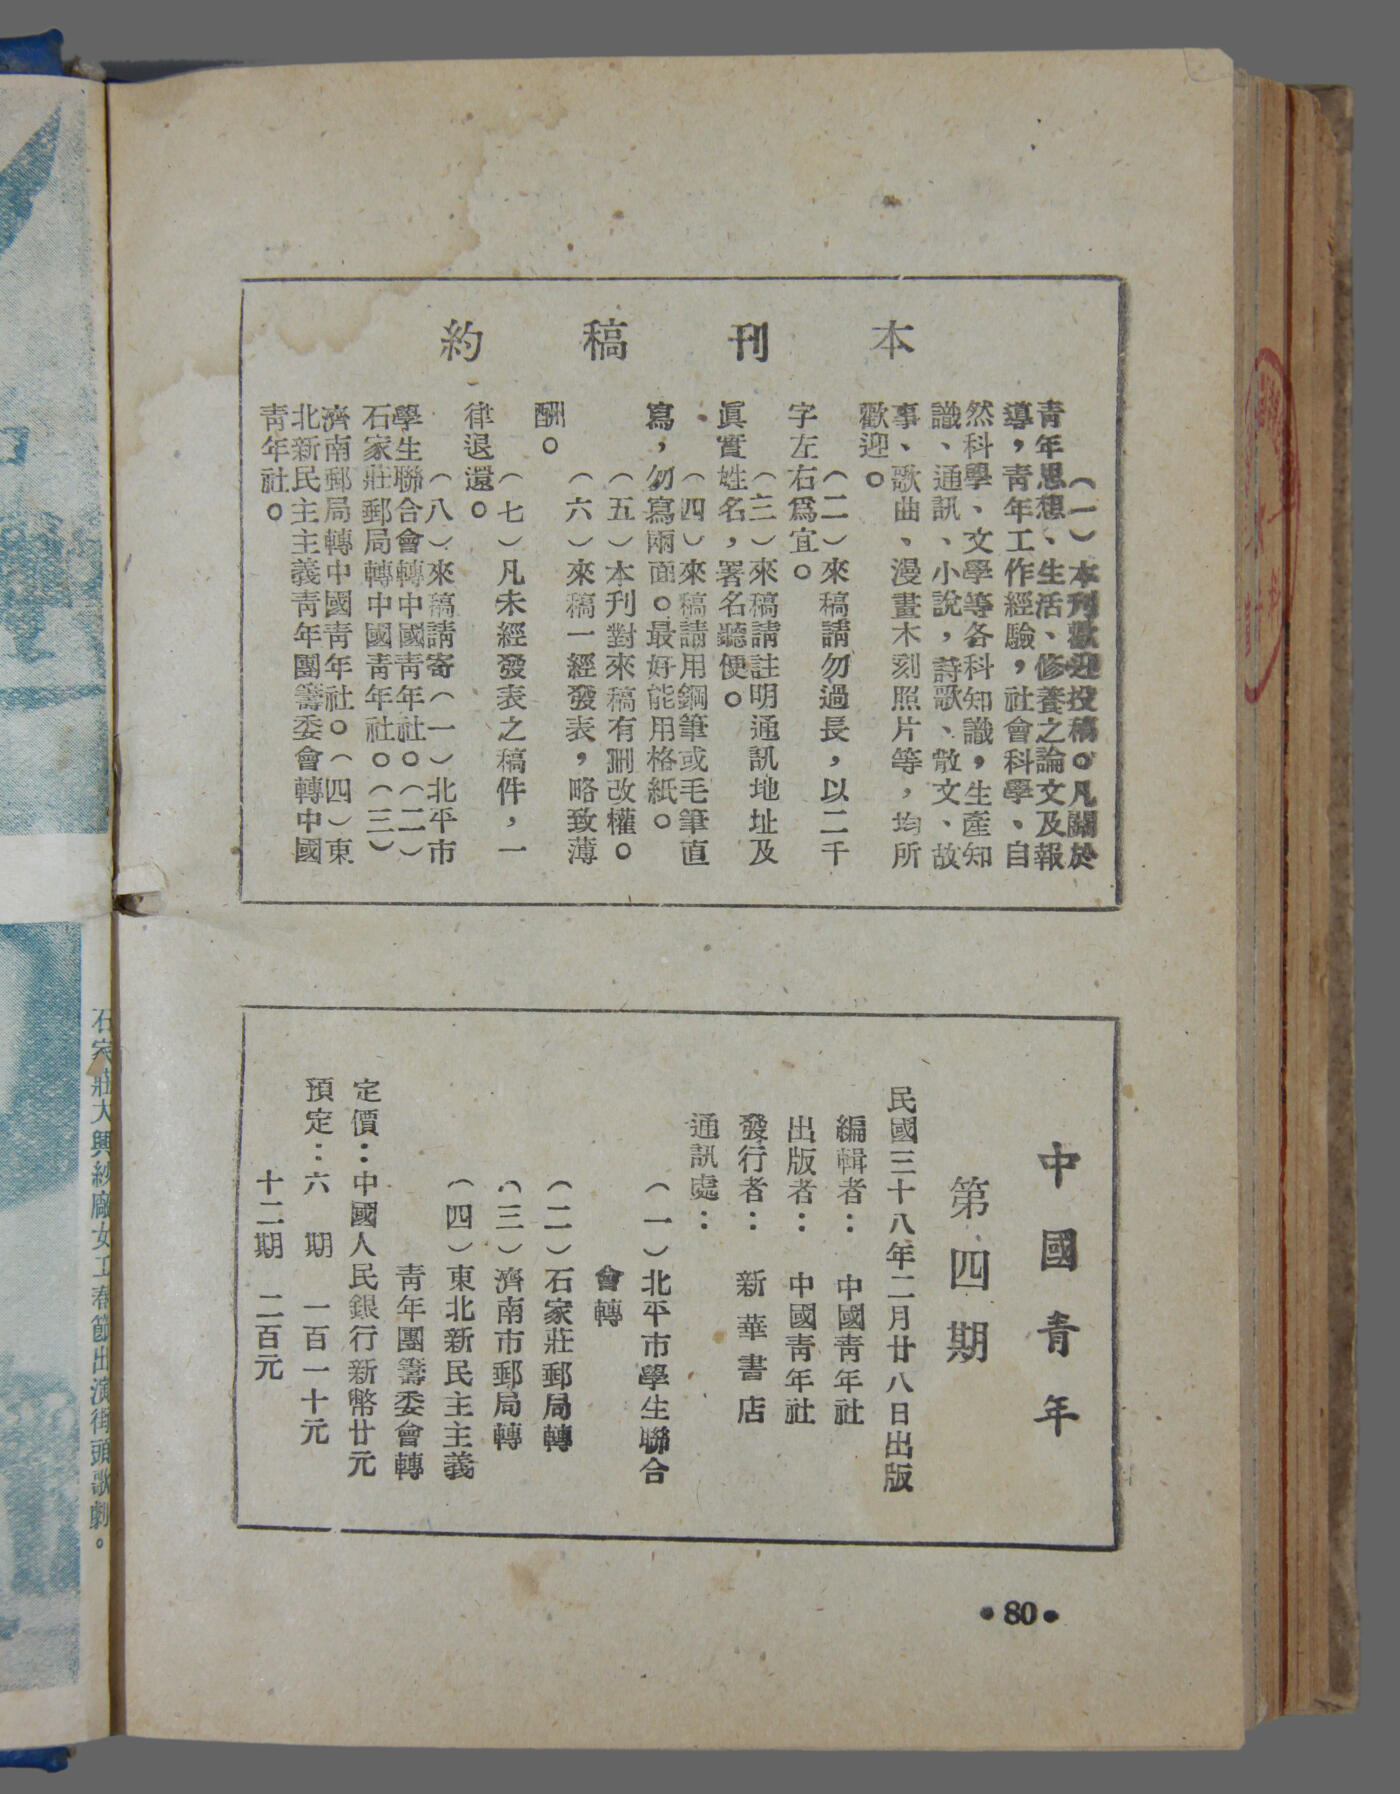 本刊稿約
（一）本刊歡迎投稿。凡關於
青年思想、生活、修養之論文及報
導，青年工作經驗，社會科學、自
然科學、文學等各科知識，生產知
識、通訊、小說，詩歌、散文、故
事、歌曲、漫畫木刻照片等，均所
歡迎。
（二）來稿請勿過長，以二千
字左右爲宜。
（三）來稿請註明通訊地址及
眞實姓名，署名聽便。
（四）來稿請用鋼筆或毛筆直
寫，勿寫兩面。最好能用格紙。
（五）本刊對來稿有刪改權。
（六）來稿一經發表，略致薄
酬。
（七）凡未經發表之稿件，一
律退還。
（八）來稿請寄（一）北平市
學生聯合會轉中國靑年社。（二）
石家莊郵局轉中國靑年社。（三）
濟南郵局轉中國靑年社。（四）東
北新民主主義靑年團籌委會轉中國
靑年社。
中國青年
第四期
民國三十八年二月廿八日出版
編輯者：中國靑年社
出版者：中國靑年社
發行者：新華書店
通訊處：
（一）北平市學生聯合
會轉
（二）石家莊郵局轉
（三）濟南市郵局轉
（四）東北新民主主義
靑年團籌委會轉
定價：中國人民銀行新幣廿元
預定：六期 一百一十元
十二期 二百元
•80•
石家莊大興紗廠女工春節出演街頭歌劇。